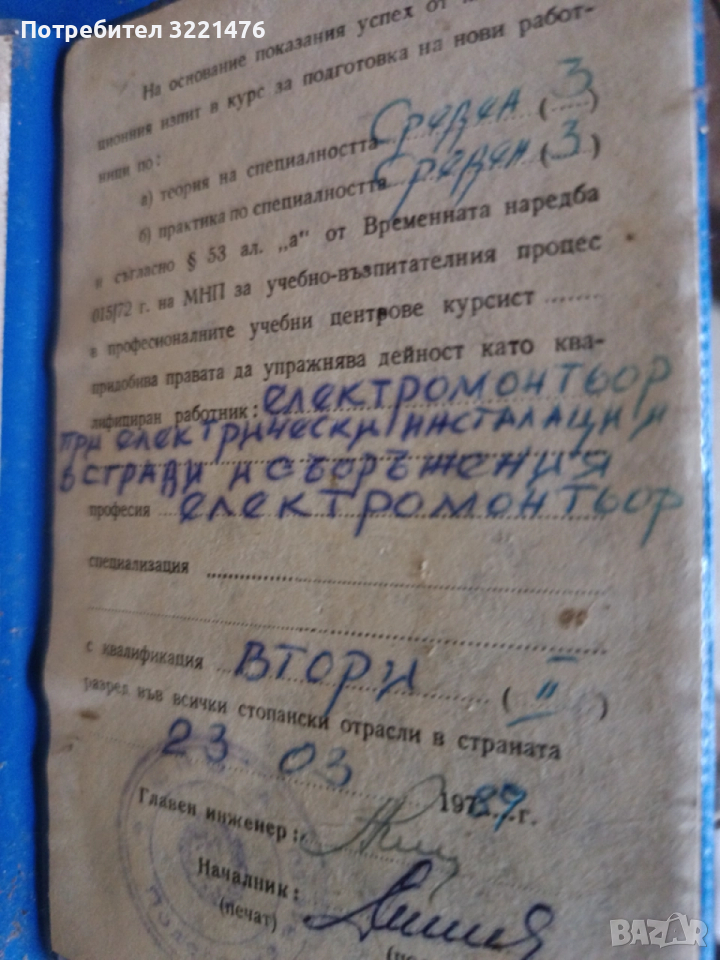 Потребител 3221476
На основание показания успех от
ционния изпит в курс за подготовка на нови работ-
ници по:
а) теория на специалността Среден (3)
б) практика по специалността Среден (3)
и съгласно § 53 ал. „а" от Временната наредба
015/72 г. на МНП за учебно-възпитателния процес
в професионалните учебни центрове курсист ........
придобива правата да упражнява дейност като ква-
лифициран работник: електромонтьор
при електрически инсталации
в сгради и съоръжения
професия електромонтьор
специализация
с квалификация втори (II)
разред във всички стопански отрасли в страната
23 03 1987 г.
Главен инженер:
Началник:
(печат)
BAZAR